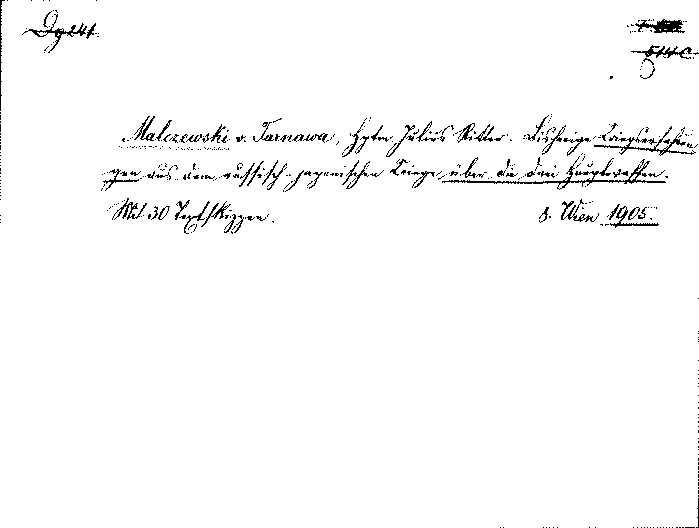 Dg 241
514 C
Malczewski v. Tarnawa, Hptm Julius Ritter. Bisherige Kriegserfahrun
gen aus dem russisch-japanischen Kriege über die drei Hauptwaffen.
Mit 30 Textskizzen. 8. Wien 1905.